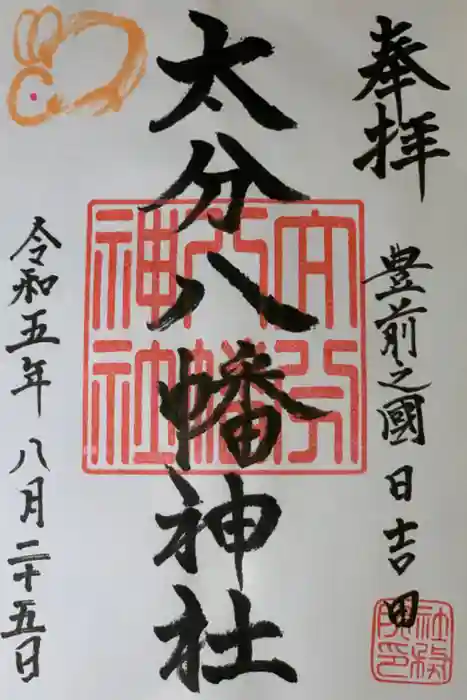 奉拝
豊前之國 日吉田
太分八幡神社
令和五年 八月二十五日
大分
八幡
神社
社務
所印